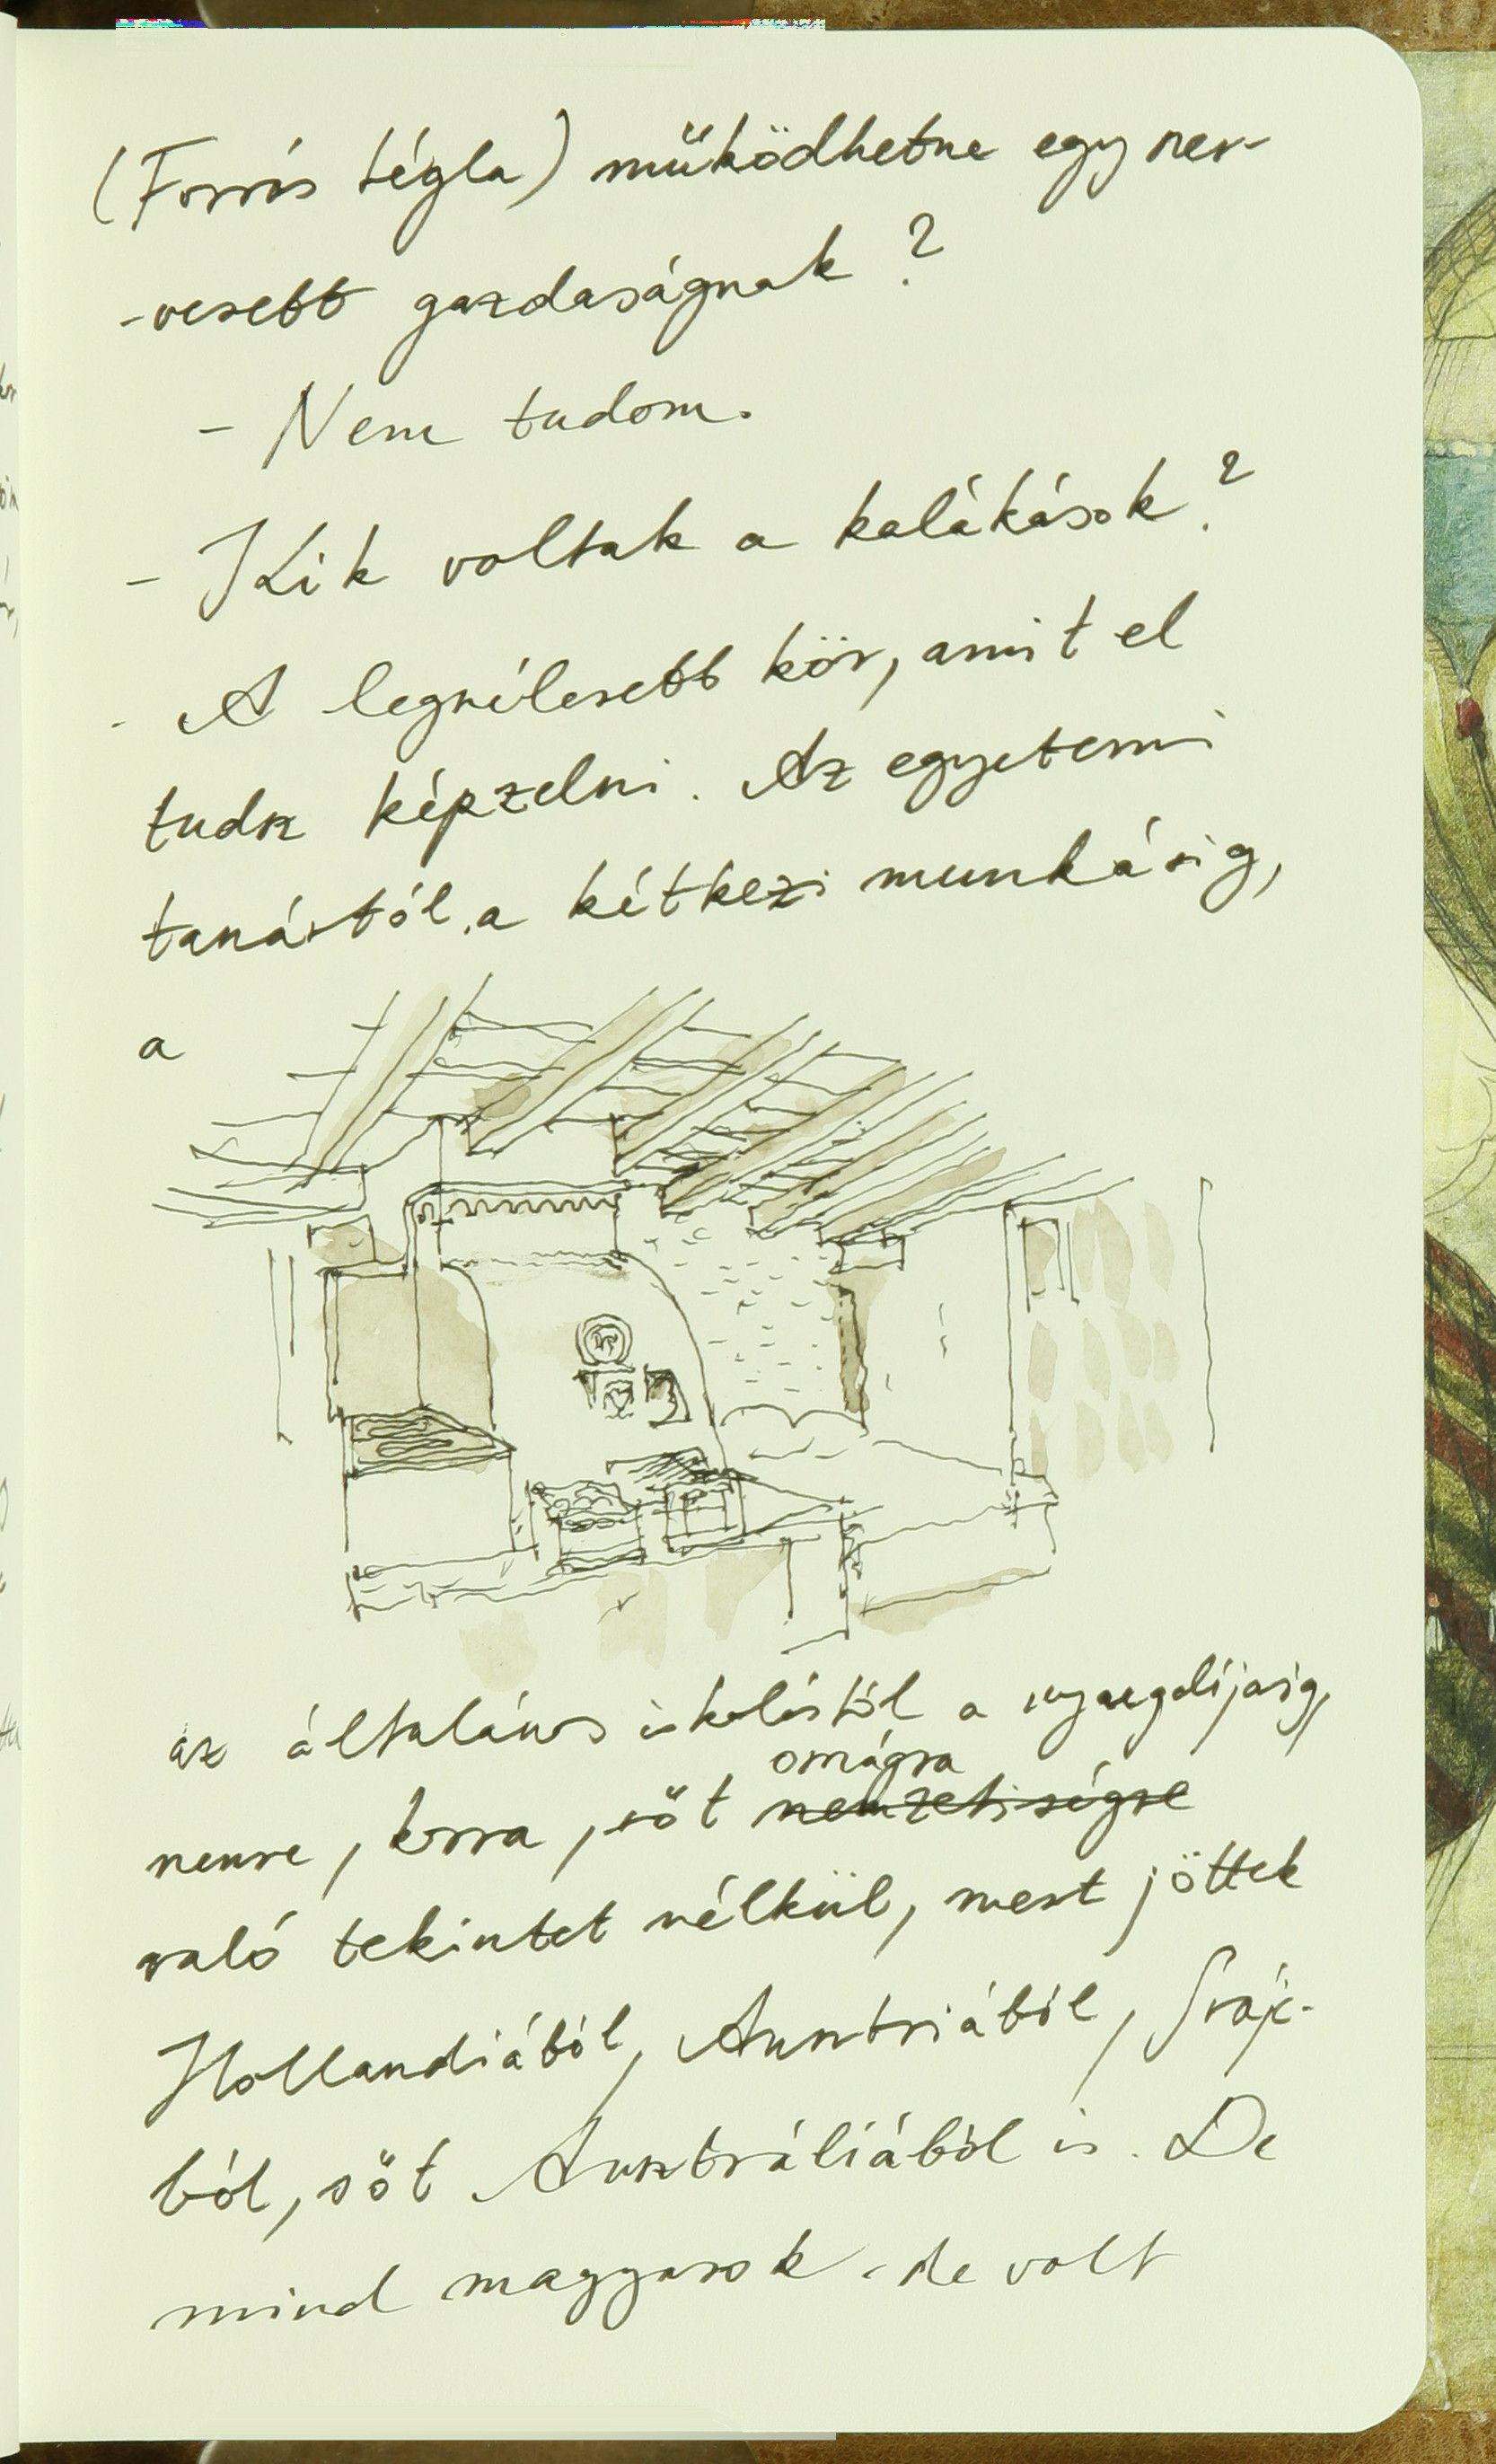 (Forrós tégla) működhetne egy ner-
-vesebb gazdaságnak?
- Nem tudom.
- Kik voltak a kalákások?
- A legszélesebb kör, amit el
tudsz képzelni. Az egyetemi
tanártól a kétkezi munkásig,
a
az általános iskolástól a nyugdíjasig,
országra
nemre, korra, sőt nemzetiségre
való tekintet nélkül, mert jöttek
Hollandiából, Ausztriából, Svájc-
ból, sőt Ausztráliából is. De
mind magyarok - de volt